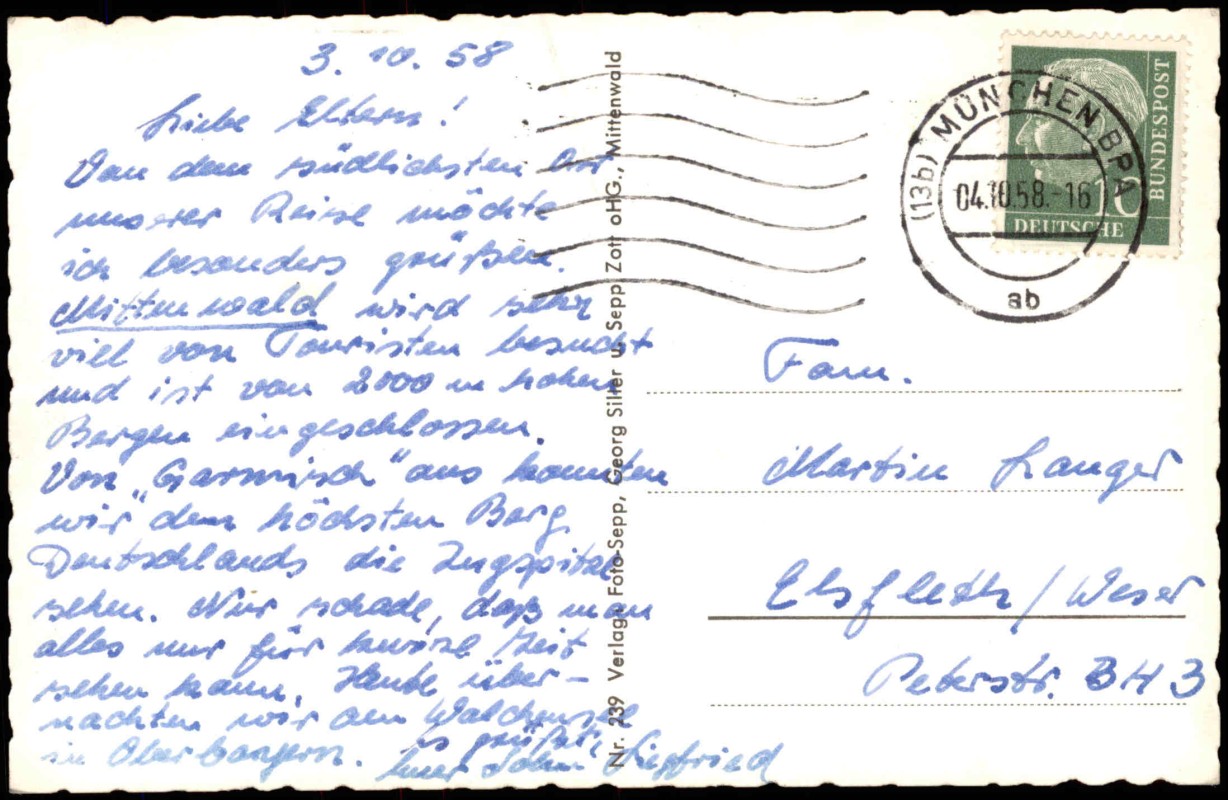 3. 10. 58
Liebe Eltern!
Von dem südlichsten Ort
unserer Reise möchte
ich besonders grüßen.
Mittenwald wird sehr
viel von Touristen besucht
und ist von 2000 m hohen
Bergen eingeschlossen.
Von „Garmisch“ aus konnten
wir den höchsten Berg
Deutschlands die Zugspitze
sehen. Nur schade, daß man
alles nur für kurze Zeit
sehen kann. Heute über-
nachten wir am Walchensee
in Oberbayern. Es grüßt
Euer Sohn Siegfried
Nr. 239 Verlag: Foto-Sepp, Georg Silller u. Sepp Zott oHG., Mittenwald
(13b) MÜNCHEN BPA
04.10.58.-16
ab
DEUTSCHE
BUNDESPOST
10
Fam.
Martin Langer
Elsfleth/Weser
Peterstr. BH 3